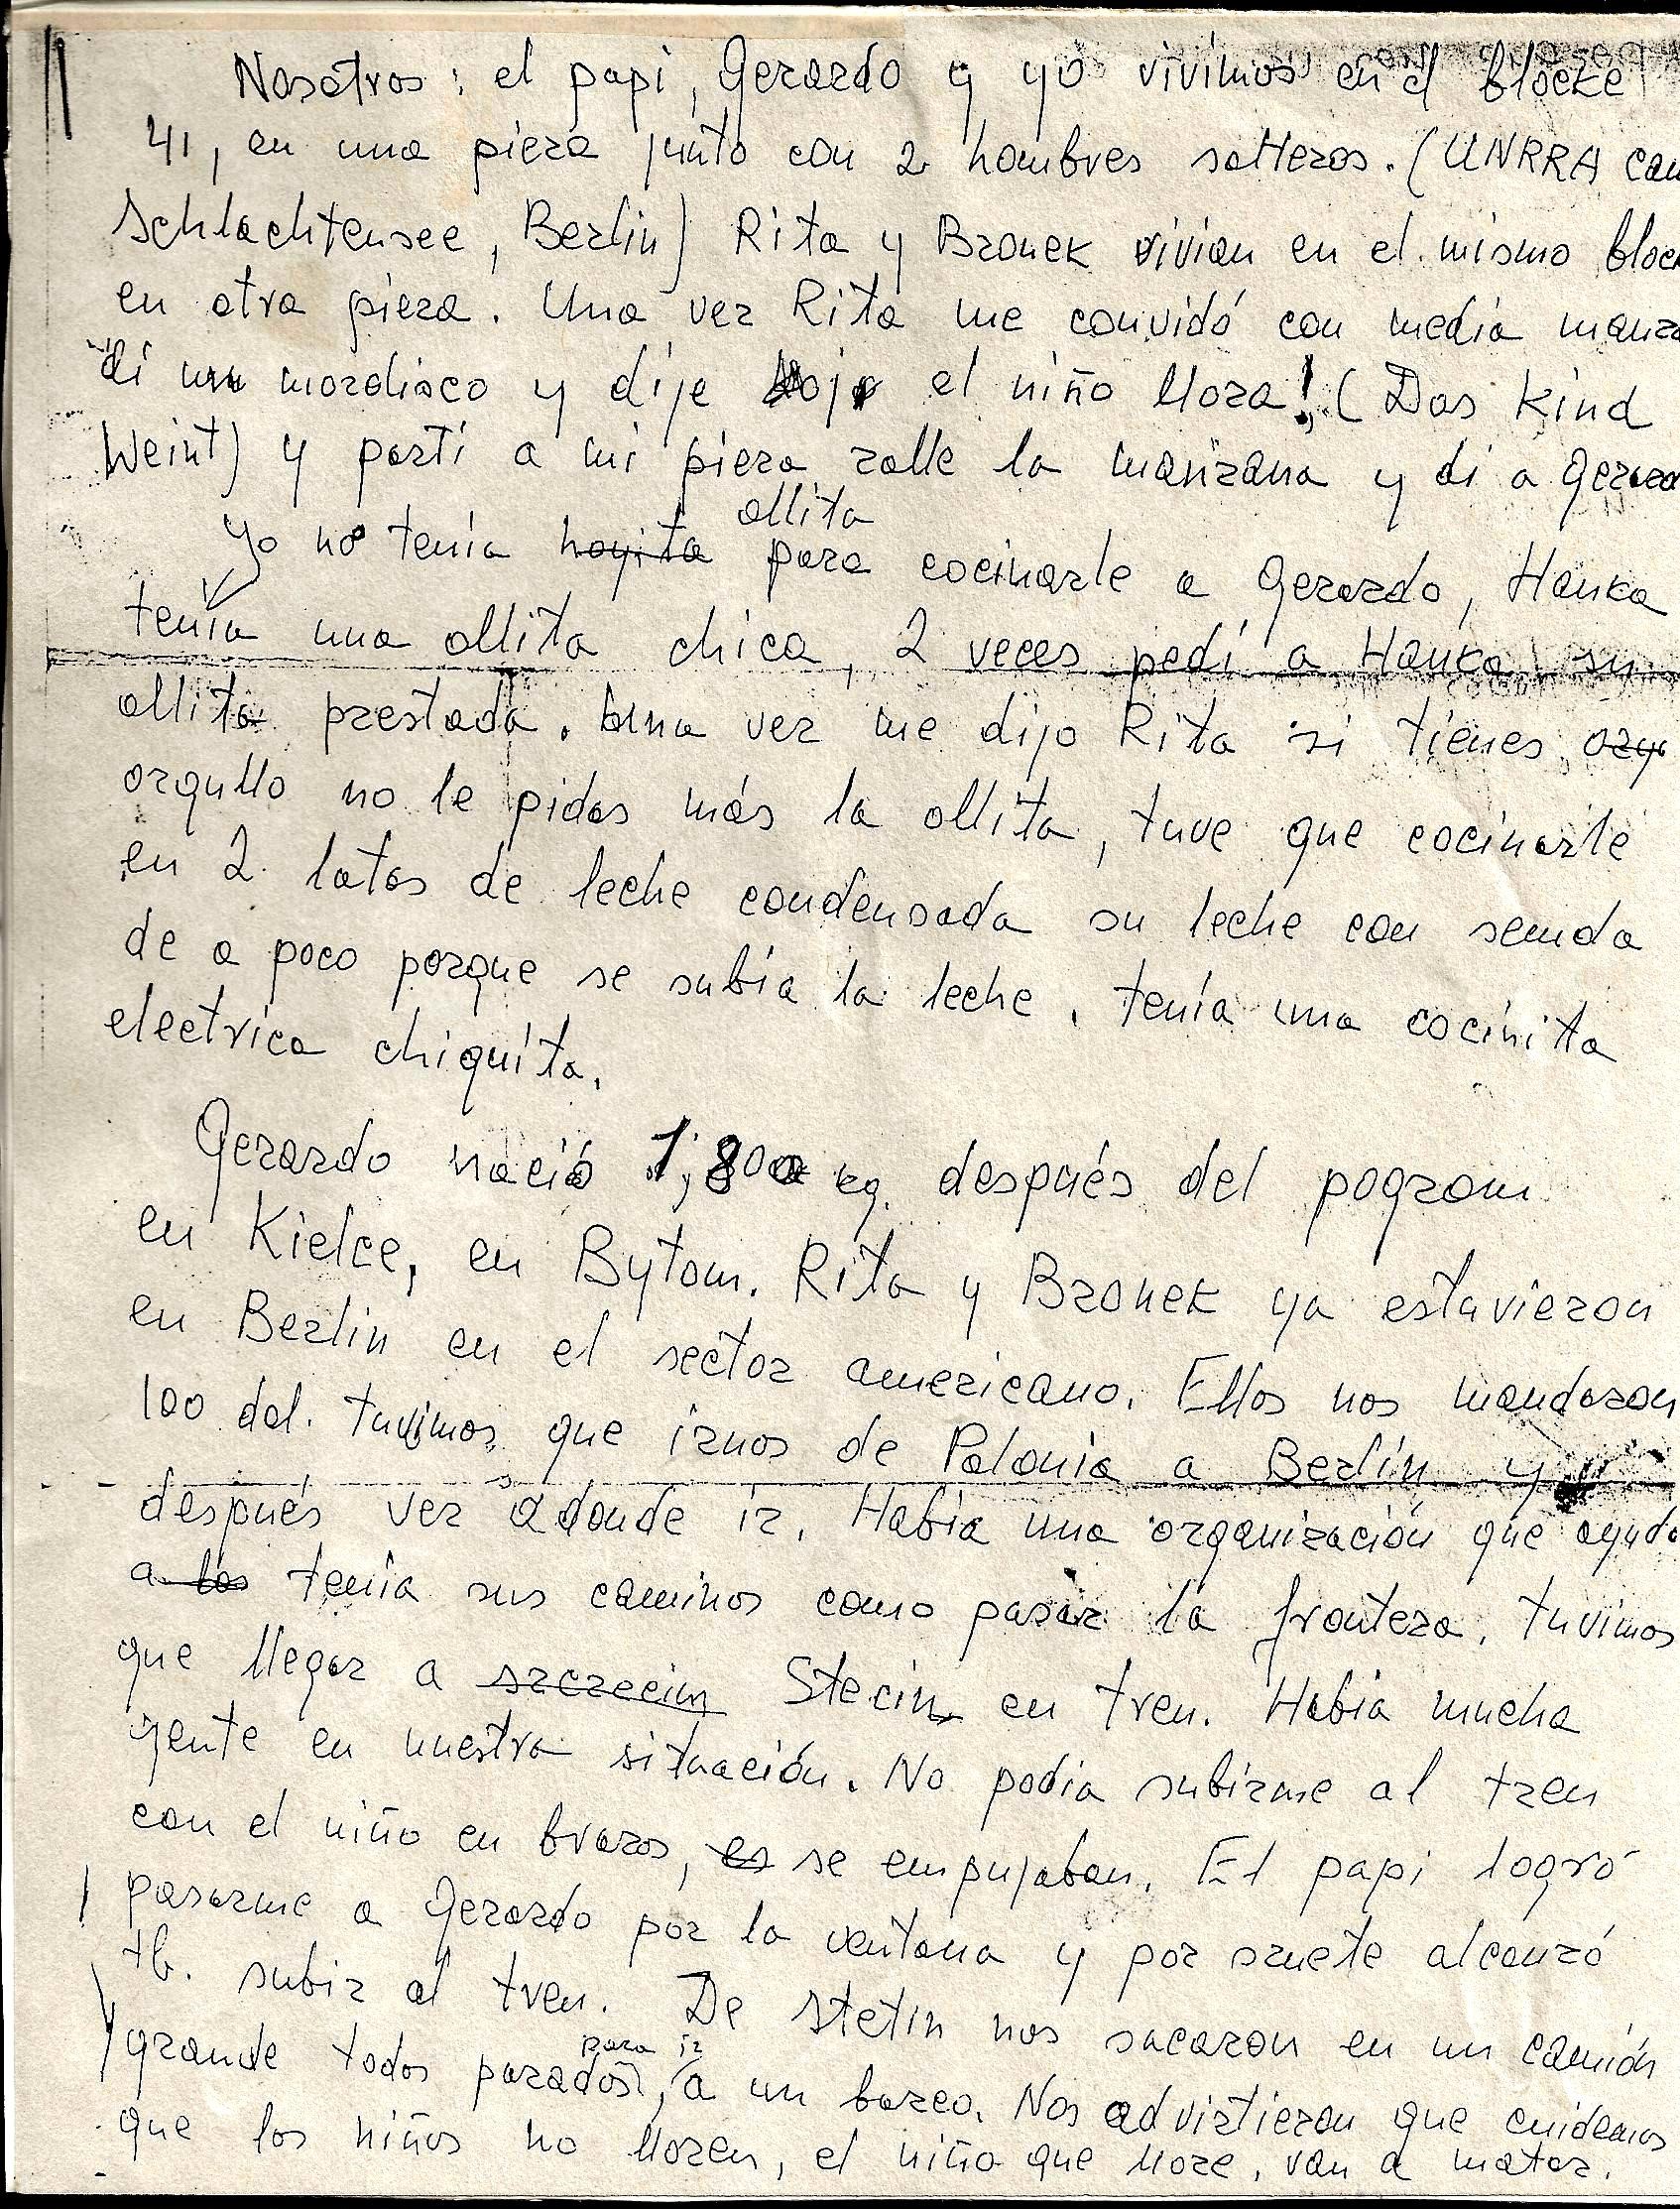 Nosotros: el papi, Gerardo y yo vivimos en el blocke
41, en una pieza junto con 2 hombres solteros. (UNRRA cam
Schlachtensee, Berlin) Rita y Bronek vivian en el mismo bloc
en otra pieza. Una vez Rita me convidó con media manza
di un mordisco y dije el niño llora! (Das Kind
Weint) y partí a mi pieza rallé la manzana y di a Gerard
Yo no tenía hoyita ollita para cocinarle a Gerardo, Hanka
tenía una ollita chica, 2 veces pedí a Hanka su
ollita prestada. Una vez me dijo Rita si tienes orgu
orgullo no le pidas más la ollita, tuve que cocinarle
en 2 latas de leche condensada su leche con semola
de a poco porque se subía la leche. tenía una cocinita
electrica chiquita.
Gerardo nació 1,800 kg. después del pogrom
en Kielce, en Bytom. Rita y Bronek ya estuvieron
en Berlin en el sector americano. Ellos nos mandaron
100 dol. tuvimos que irnos de Polonia a Berlín y
después ver adonde ir. Había una organización que ayuda
a los tenía sus caminos como pasar la frontera. tuvimos
que llegar a szczecin Stecin en tren. Había mucha
gente en nuestra situación. No podia subirme al tren
con el niño en brazos, es se empujaban. El papi logró
pasarme a Gerardo por la ventana y por suerte alcanzó
tb. subir al tren. De Stetin nos sacaron en un camión
grande todos parados, para ir a un barco. Nos advirtieron que cuidemos
que los niños no lloren, el niño que llore, van a matar.